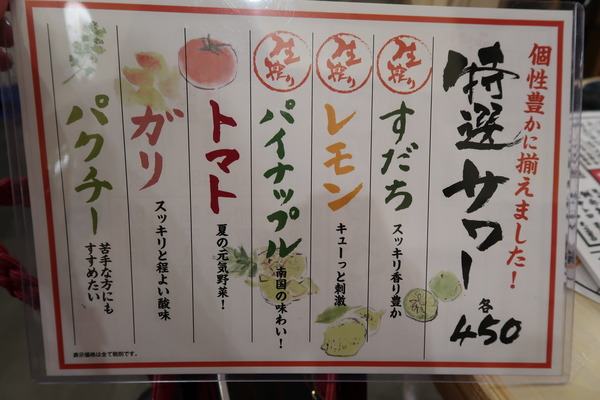 個性豊かに揃えました！
特選サワー
各450
生搾り
すだち
スッキリ香り豊か
生搾り
レモン
キューっと刺激
生搾り
パイナップル
南国の味わい！
トマト
夏の元気野菜！
ガリ
スッキリと程よい酸味
パクチー
苦手な方にも
すすめたい
表示価格は全て税別です。